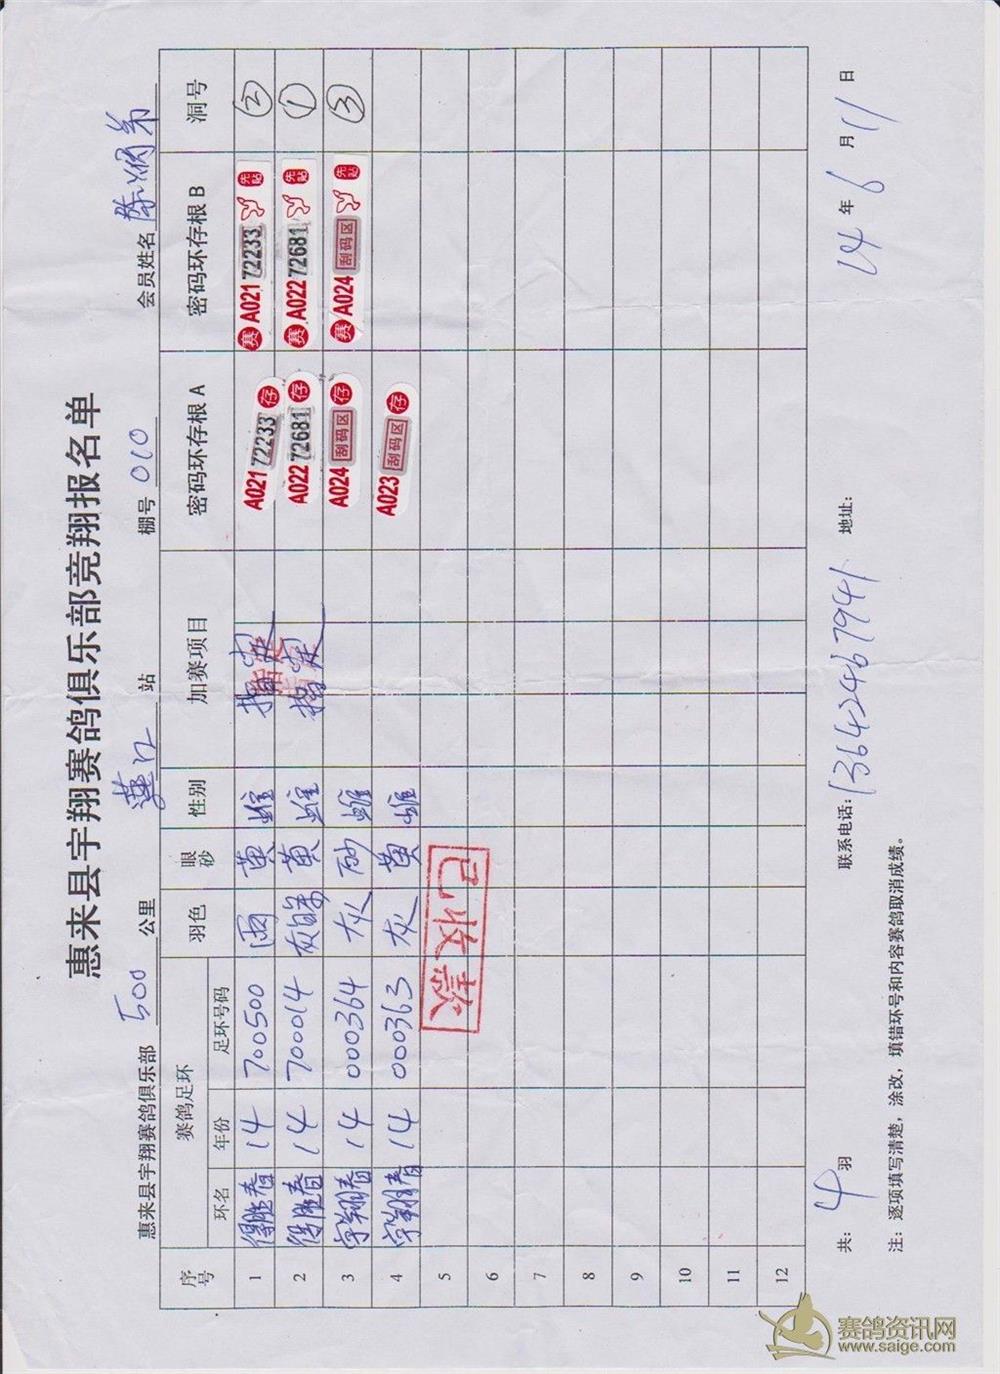 惠来县宇翔赛鸽俱乐部竞翔报名单
惠来县宇翔赛鸽俱乐部 500 公里 站 棚号 010 会员姓名 陈炳弟
序号 赛鸽足环 羽色 眼砂 性别 加赛项目 密码环存根A 密码环存根B 洞号
环名 年份 足环号码
1 得胜春 14 700500 雨 黄 雄 指定 A021 72233 存 赛 A021 72233 先贴 ②
2 得胜春 14 700014 黄 雄 指定 A022 72681 存 赛 A022 72681 先贴 ①
3 宇翔春 14 000364 灰 砂 雄 A024 刮码区 存 赛 A024 刮码区 先贴 ③
4 宇翔春 14 000363 灰 黄 雄 A023 刮码区 存
5
6
7
8
9
10
11
12
已收款
共: 4 羽 联系电话: 13642467941 地址: 14 年 6 月 11 日
注: 逐项填写清楚，涂改，填错环号和内容赛鸽取消成绩。
赛鸽资讯网
www.saige.com